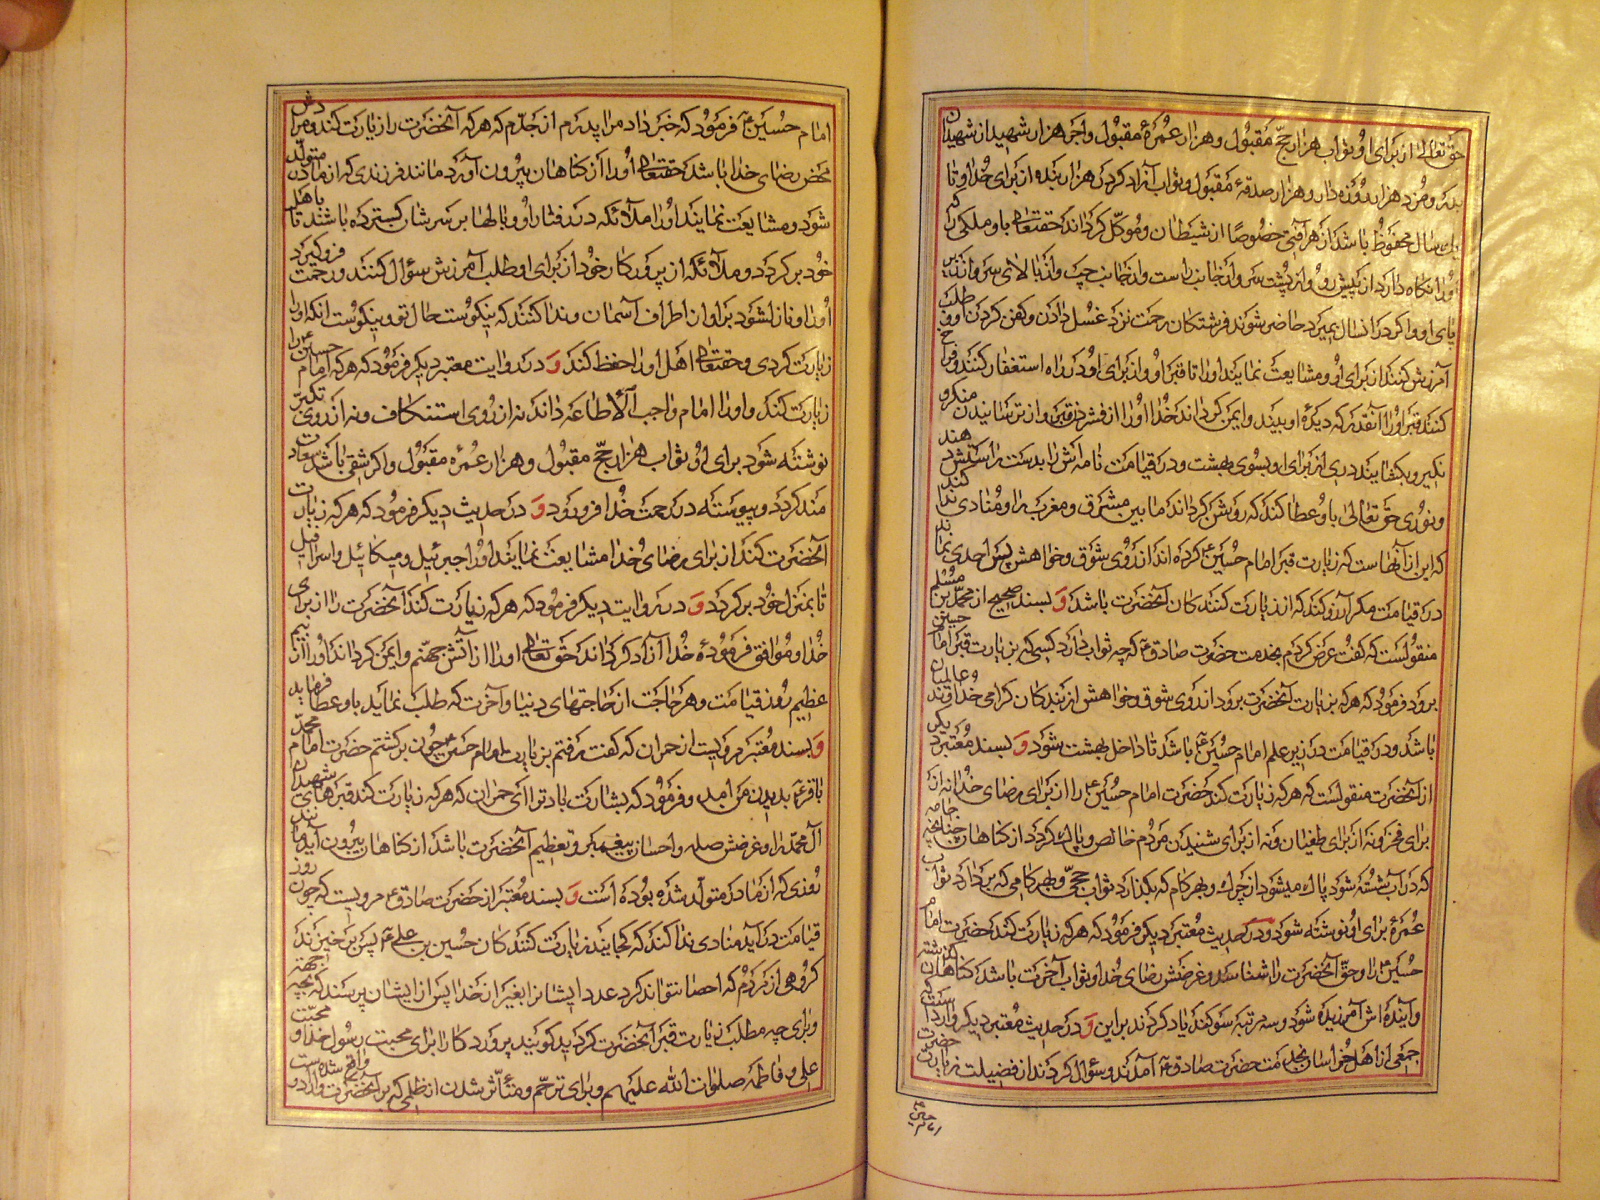 حق تعالی از برای او ثواب هزار حج مقبول و هزار عمرهٔ مقبول و اجر هزار شهید از شهیدان
بدر و مزد هزار روزه دار و هزار صدقهٔ مقبول و ثواب آزاد کردن هزار بنده از برای خدا و تا
یک سال محفوظ باشد از هر آفتی خصوصا از شیطان و موکل گرداند حقتعالی باو ملکی که
او را نگاه دارد از پیش رو و از پشت سر و از جانب راست و از جانب چپ و از بالای سر و از زیر
پای او و اگر در آنسال بمیرد حاضر شوند فرشتگان رحمت نزد غسل دادن و کفن کردن او و طلب
آمرزش کنند از برای او و مشایعت نمایند او را تا قبر او و از برای او در راه استغفار کنند و فراخ
کنند قبر او را آنقدر که دیدهٔ او بیند و ایمن گرداند خدا او را از فشردن قبر و از ترسانیدن منکر و
نکیر و بگشایند دری از برای او بسوی بهشت و در قیامت نامه اش را بدست راستش دهند
و نوری حق تعالی باو عطا کند که روشن گرداند ما بین مشرق و مغرب را و منادی ندا کند
که این از آنهاست که زیارت قبر امام حسین ع کرده اند از روی شوق و خواهش پس احدی نماند
در قیامت مگر آرزو کند که از زیارت کنندکان آنحضرت باشد و بسند صحیح از محمد بن مسلم
منقولست که گفت عرض کردم بخدمت حضرت صادق ع که چه ثواب دارد کسی که بزیارت قبر امام حسین
برود فرمود که هر که بزیارت آنحضرت برود از روی شوق و خواهش از بندکان گرامی خداوند عالمیان
باشد و در قیامت در زیر علم امام حسین ع باشد تا داخل بهشت شود و بسند معتبر دیگر
از آنحضرت منقولست که هر که زیارت کند حضرت امام حسین ع را از برای رضای خدا نه از
برای فخر و نه از برای طغیان و نه از برای شنیدن مردم خالص و پاک گردد از کناهان چنانچه جامه
که در آب شسته شود پاک میشود از چرک و بهر کام که بگذارد ثواب حجی و بهر کامی که بردارد ثواب
عمرهٔ برای او نوشته شود و در حدیث معتبر دیگر فرمود که هر که زیارت کند حضرت امام
حسین را و حق آنحضرت را شناسد و غرضش رضای خدا و ثواب آخرت باشد کناهان گذشته
و آینده اش آمرزیده شود و سه مرتبه سوگند یاد کردند براین و در حدیث معتبر دیگر وارد است که
جمعی از اهل خراسان بخدمت حضرت صادق ع آمدند و سؤال کردند از فضیلت زیارت حضرت
امام حسین ع
امام حسین ع فرمود که خبر داد مرا پدرم از جدم که هر که آنحضرت را زیارت کند و مرادش
محض رضای خدا باشد حقتعالی او را از کناهان بیرون آورد مانند فرزندی که از مادر متولد
شود و مشایعت نمایند او را ملائکه در رفتار او و بالها بر سرشان گسترده باشند تا باهل
خود برگردد و ملائکه از پرورکار خود از برای او طلب آمرزش سؤال کنند و رحمت فرو گیرد
او را و نازل شود بر او از اطراف آسمان و ندا کنند که نیکوست حال تو و نیکوست آنکه او را
زیارت کردی و حقتعالی اهل او را حفظ کند و در روایت معتبر دیگر فرمود که هر که امام حسین را
زیارت کند و او را امام واجب الاطاعه داند نه از روی استنکاف و نه از روی تکبر
نوشته شود برای او ثواب هزار حج مقبول و هزار عمره مقبول و اگر شقی باشد سعادت
مند گردد و پیوسته در رحمت خدا فرو رود و در حدیث دیگر فرمود که هر که زیارت
آنحضرت کند از برای رضای خدا مشایعت نمایند او را جبرئیل و میکائیل و اسرافیل
تا بمنزل خود برگردد و در روایت دیگر فرمود که هر که زیارت کند آنحضرت را از برای
خدا و موافق فرمودهٔ خدا آزاد گرداند حق تعالی او را از آتش جهنم و ایمن گرداند او را از بیم
عظیم روز قیامت و هر حاجت از حاجتهای دنیا و آخرت که طلب نماید باو عطا فرماید
و بسند معتبر مرویست از حمران که گفت رفتم بزیارت امام حسین ع چون برگشتم حضرت امام محمد
باقر ع بدیدن من آمد و فرمود که بشارت باد ترا ای حمران که هر که زیارت کند قبرهای شهیدان
آل محمد را و غرضش صله و احسان پیغمبر و تعظیم آنحضرت باشد از کناهان بیرون آید مانند
روزی که از مادر متولد شده بوده است و بسند معتبر از حضرت صادق ع مرویست که چون روز
قیامت در آید منادی ندا کند که کجایند زیارت کنندکان حسین بن علی ع پس برخیزند
گروهی از مردم که احصا نتواند کرد عدد ایشانرا بغیر از خدا پس از ایشان پرسند که بچه جهة
و برای چه مطلب زیارت قبر آنحضرت کردید گویند پروردکارا برای محبت رسول خدا و محبت
علی و فاطمه صلوات الله علیهم و برای ترحم و متأثر شدن از ظلمی که بر آنحضرت واقع شده است